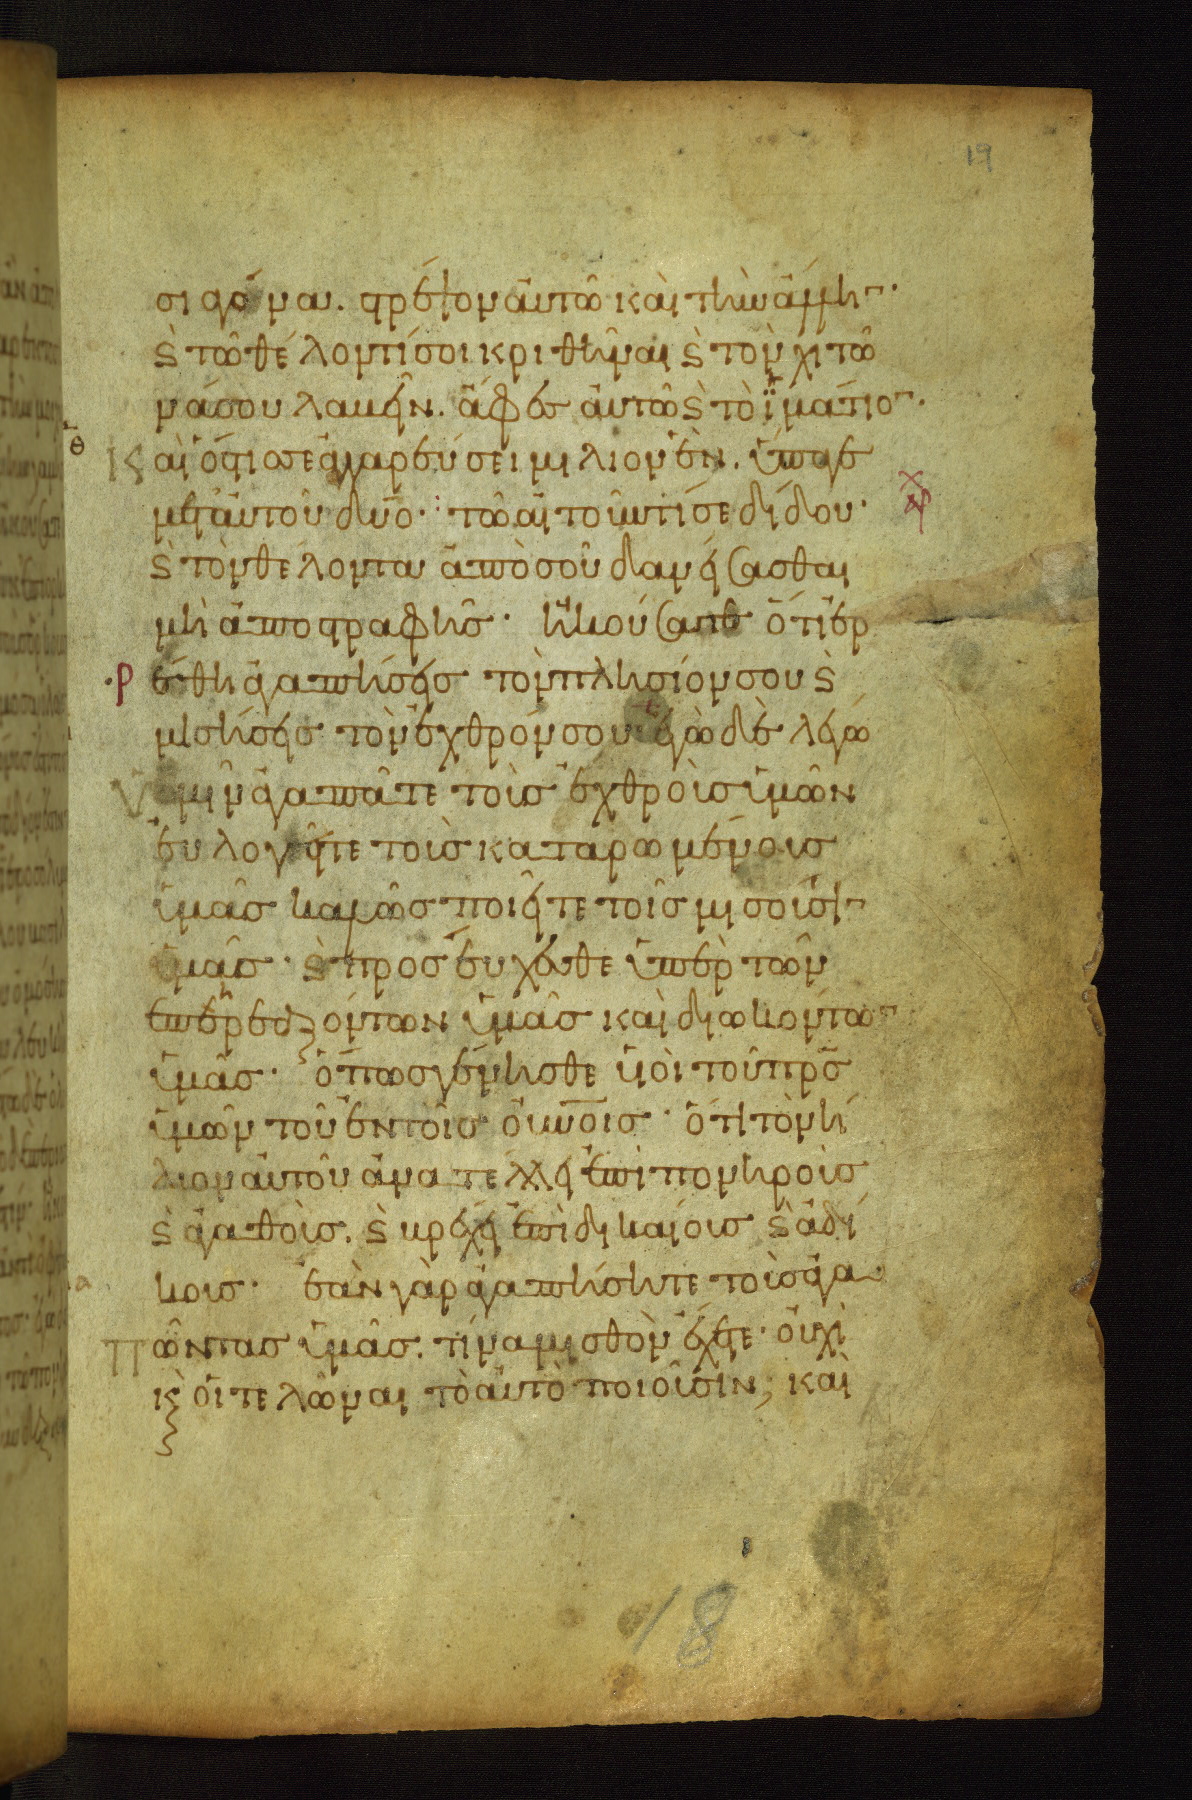 19
σιαγόναν. στρέψον αὐτῶ καὶ τὴν ἄλλη̅·
ϗ τῶ θέλοντί σοι κριθῆναι ϗ τὸν χιτῶ
νά σου λαβεῖν. ἄφες αὐτῶ ϗ τὸ ϊμάτιο̅·
Και ὅστις σε ἀγγαρεύσει μίλιον ἕν. ὕπαγε
μετ' αὐτοῦ δύο· τῶ αἰτοῦντί σε δίδου·
ϗ τὸν θέλοντα ἀπὸ σοῦ δανείσασθαι
μὴ ἀποστραφῆς· ἠκούσατε ὅτι ἐρ
ρ ρέθη ἀγαπήσεις τὸν πλησίον σου ϗ
μισήσεις τὸν ἐχθρόν σου· ἐγὼ δὲ λέγω
Ὑμῖν ἀγαπᾶτε τοὺς ἐχθροὺς ὑμῶν
εὐλογεῖτε τοὺς καταρωμένους
ὑμᾶς καλῶς ποιεῖτε τοῖς μισοῦσι̅
ὑμᾶς· ϗ προσεύχεσθε ὑπὲρ τῶν
ἐπηρεαζόντων ὑμᾶς καὶ διωκόντω̅
ὑμᾶς· ὅπως γένησθε υἱοὶ τοῦ πρ̅ς
ὑμῶν τοῦ ἐν τοῖς οὐνοῖς· ὅτι τὸν ἥ
λιον αὐτοῦ ἀνατέλλει ἐπὶ πονηροὺς
ϗ ἀγαθοὺς. ϗ βρέχει ἐπὶ δικαίους ϗ ἀδί
κους· ἐὰν γὰρ ἀγαπήσητε τοὺς ἀγα
Πῶντας ὑμᾶς. τίνα μισθὸν ἔχετε· οὐχὶ
κ̀ οἱ τελῶναι τὸ αὐτὸ ποιοῦσιν; καὶ
18